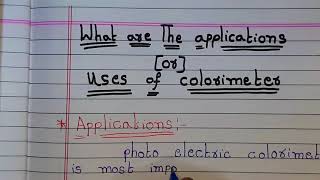 What are The applications
[or]
Uses of colorimeter
* Applications:-
photo electric colorimet
is most imp